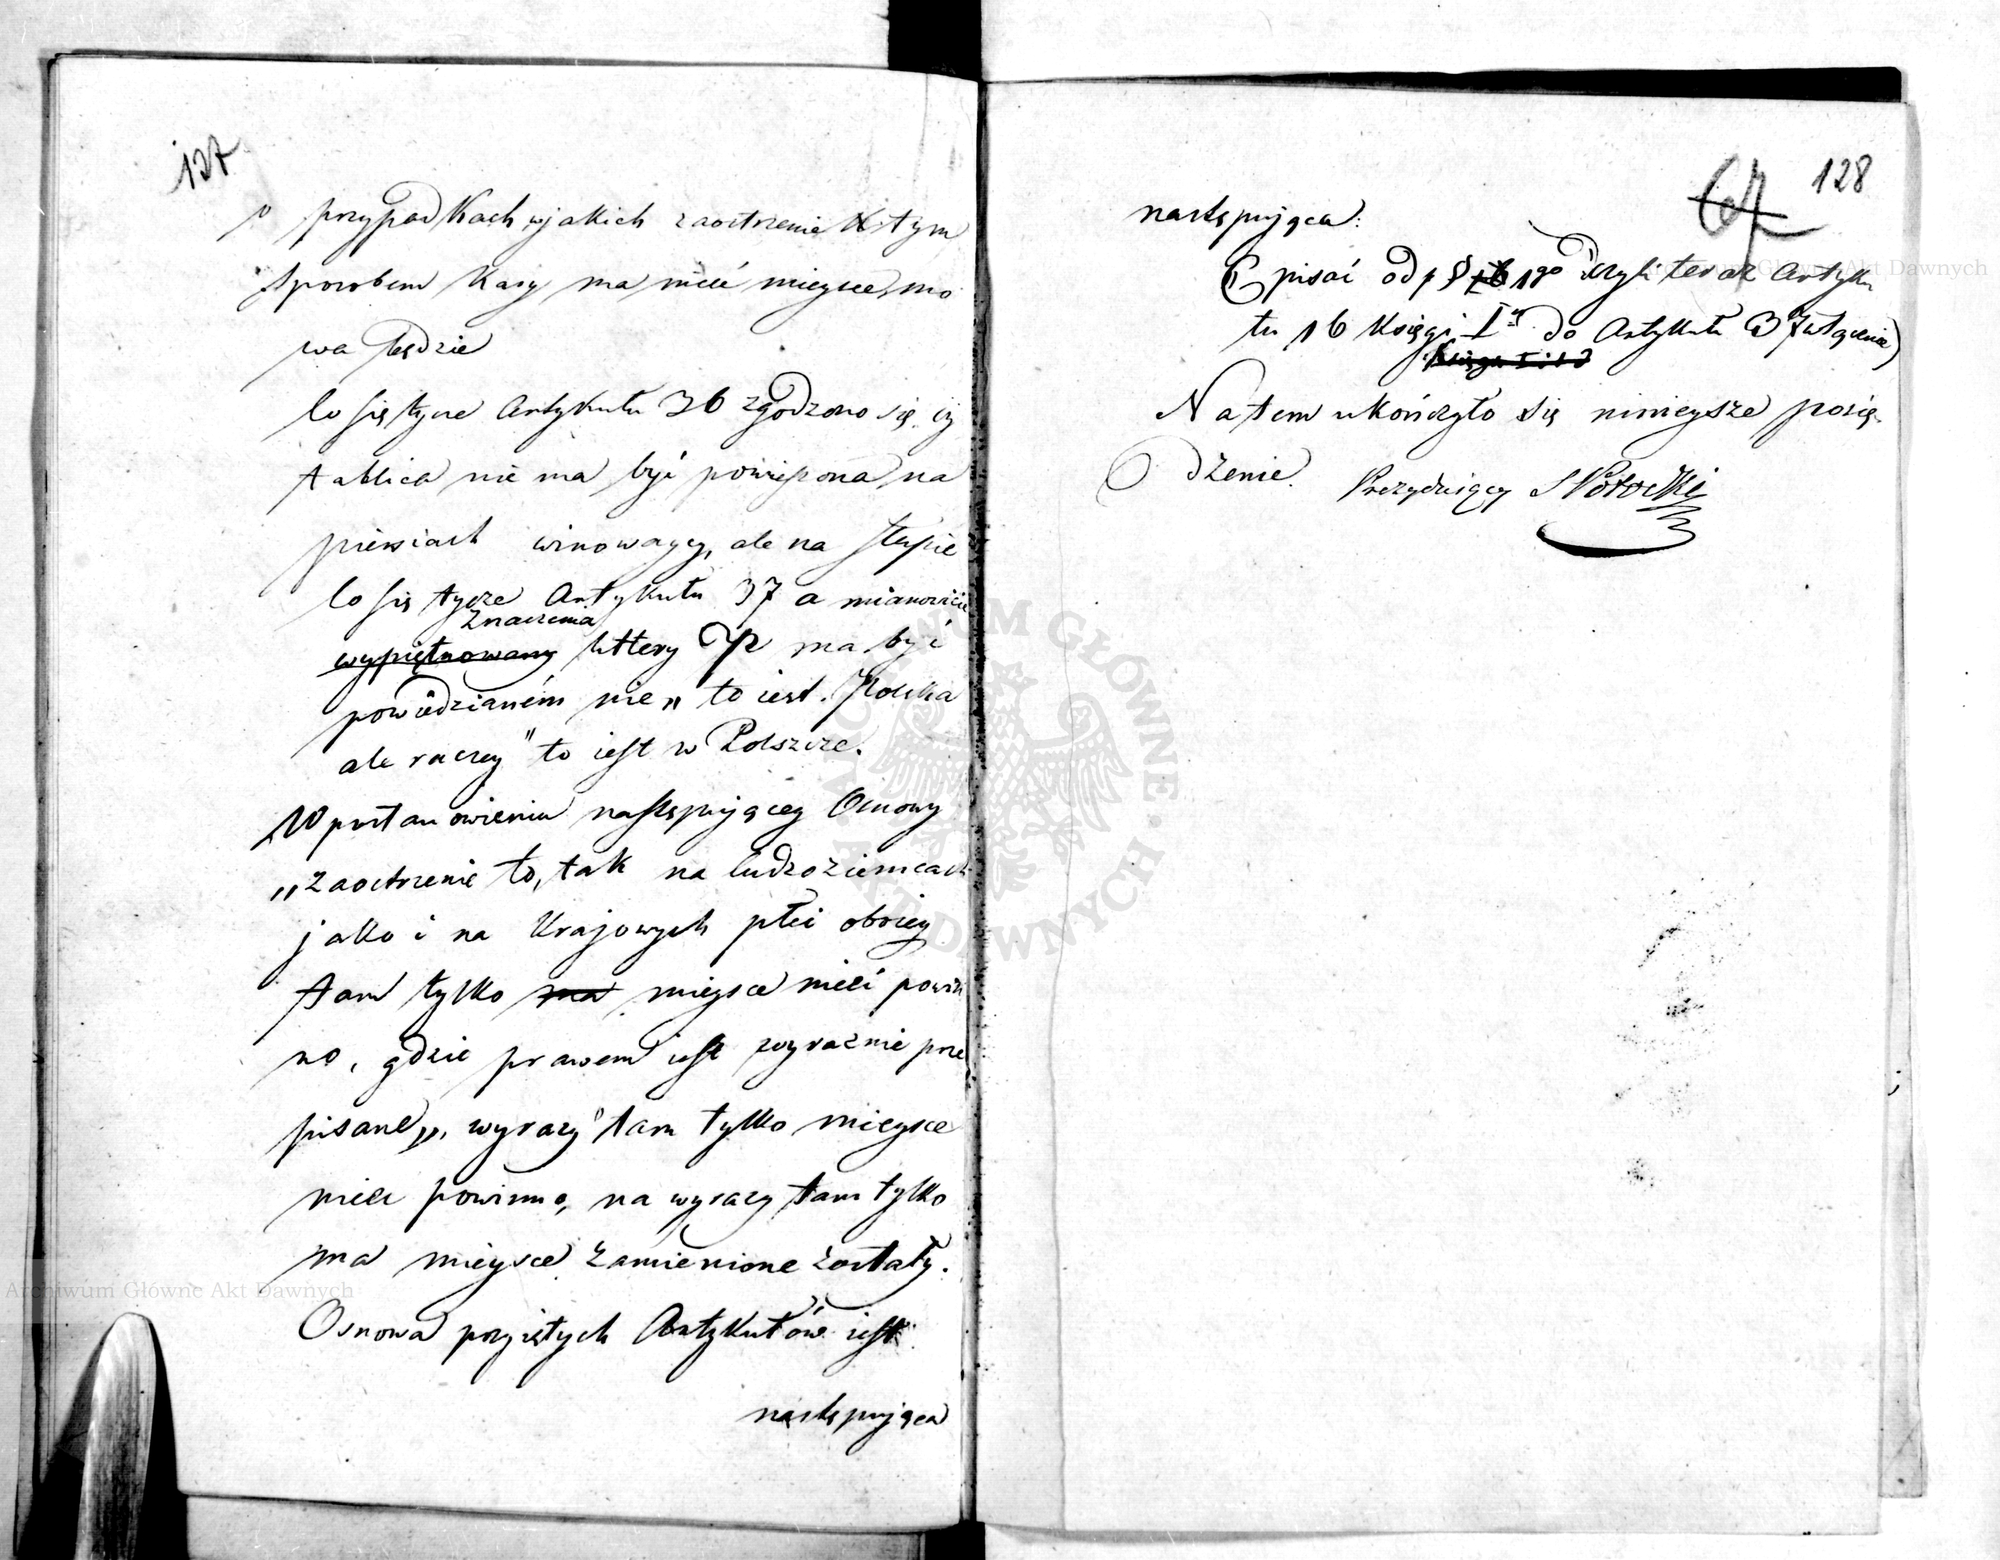 127
o przypadkach w jakich zaostrzenie tym
sposobem kary ma mieć mieysce, mo
wa będzie
Co się tycze Artykułu 36 zgodzono się, iż
tablica nie ma być powieszona na
piersiach winowaycy, ale na słupie
Co się tycze Artykułu 37 a mianowicie
Znaczenia
wypiętnowany littery P ma być
powiedzianém nie „to iest Polska
ale raczey "to iest w Polszcze.
W postanowieniu następuiącey Osnowy
„zaostrzenie to, tak na Cudzoziemcach
jako i na Krajowych płci oboiey
tam tylko ma mieysce mieć powin
no, gdzie prawem iest wyraznie prze
pisane„, wyrazy "tam tylko mieysce
mieć powinno, na wyrazy tam tylko
ma mieysce zamienione zostały.
Osnowa przyiętych Artykułów iest
następuiąca
67 128
następuiąca:
(pisać od § 16 1go czyli teraz Artyku
łu 16 Księgi I do Artykułu 37 włącznie)
Na tem ukończyło się nınieysze posie
dzenie. Prezyduiący S Potocki
Archiwum Główne Akt Dawnych
Archiwum Główne Akt Dawnych
ARCHIWUM GŁÓWNE AKT DAWNYCH